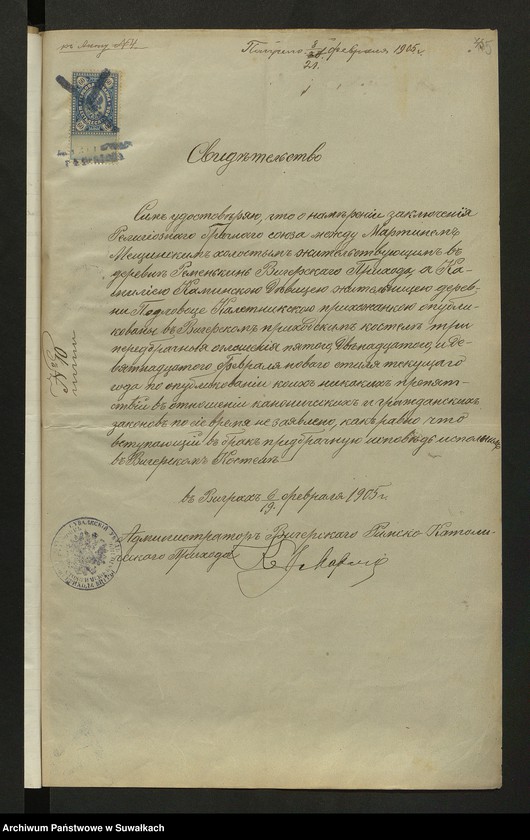 къ Акту № 4
Получено 8/21 февраля 1905 г.
Свидѣтельство
Симъ удостовѣряю, что о намѣреніи заключенія
Религіознаго брачнаго союза между Мартиномъ
холостымъ жительствующимъ въ
деревнѣ Вигерскаго Прихода, а Ка-
милею Каминскою Дѣвицею жительницею дерев-
ни Калетникскою прихожанкою опубли-
кованы въ Вигерскомъ приходскомъ костелѣ три
передбрачныя оглашенія пятого, двенадцатого, и де-
вятнадцатого Февраля новаго стиля текущаго
года по опубликованіи коихъ никакихъ препят-
ствій въ отношеніи каноническихъ и гражданскихъ
законовъ по сіе время не заявлено, какъ равно что
вступающій въ бракъ предбрачную исповѣдь исполнилъ
въ Вигерскомъ Костелѣ.
№ 10
въ Виграхъ 6/19 февраля 1905 г.
Администраторъ Вигерскаго Римско-Католи-
ческаго Прихода
Archiwum Państwowe w Suwałkach